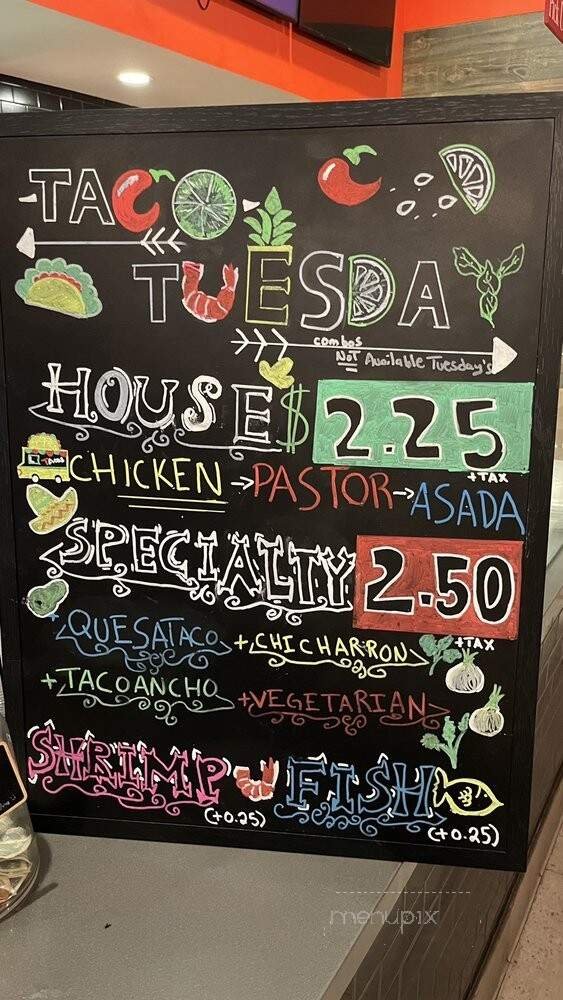 TACO
TUESDAY
combos
NOT Available Tuesday's
HOUSE $ 2.25
+TAX
TACOS
CHICKEN → PASTOR → ASADA
SPECIALTY 2.50
+TAX
+QUESATACO +CHICHARRON
+TACOANCHO +VEGETARIAN
SHRIMP FISH
(+0.25) (+0.25)
menupix